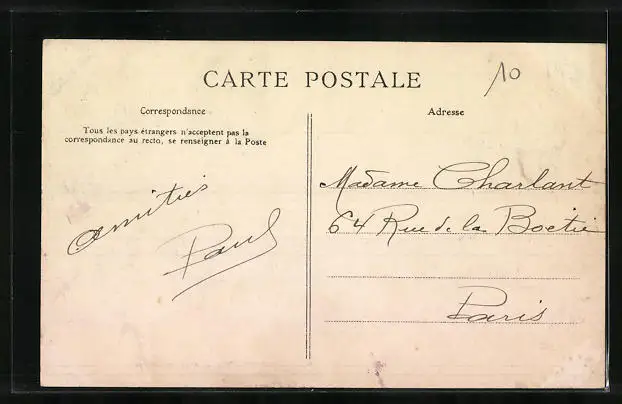 CARTE POSTALE
10
Correspondance
Tous les pays étrangers n'acceptent pas la
correspondance au recto, se renseigner à la Poste
Amitiés
Paul
Adresse
Madame Charlant
64 Rue de la Boëtie
Paris